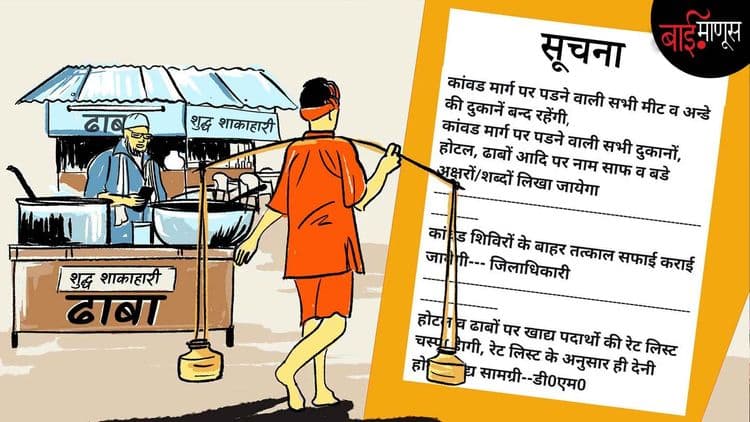 बाई माणूस
सूचना
कांवड मार्ग पर पडने वाली सभी मीट व अन्डे
की दुकानें बन्द रहेंगी,
कांवड मार्ग पर पडने वाली सभी दुकानों,
होटल, ढाबों आदि पर नाम साफ व बडे
अक्षरों/शब्दों लिखा जायेगा
शिविरों के बाहर तत्काल सफाई कराई
जिलाधिकारी
व ढाबों पर खाद्य पदार्थो की रेट लिस्ट
रेट लिस्ट के अनुसार ही देनी
सामग्री--डी0एम0
ढाबा
शुद्ध शाकाहारी
शुद्ध शाकाहारी
ढाबा